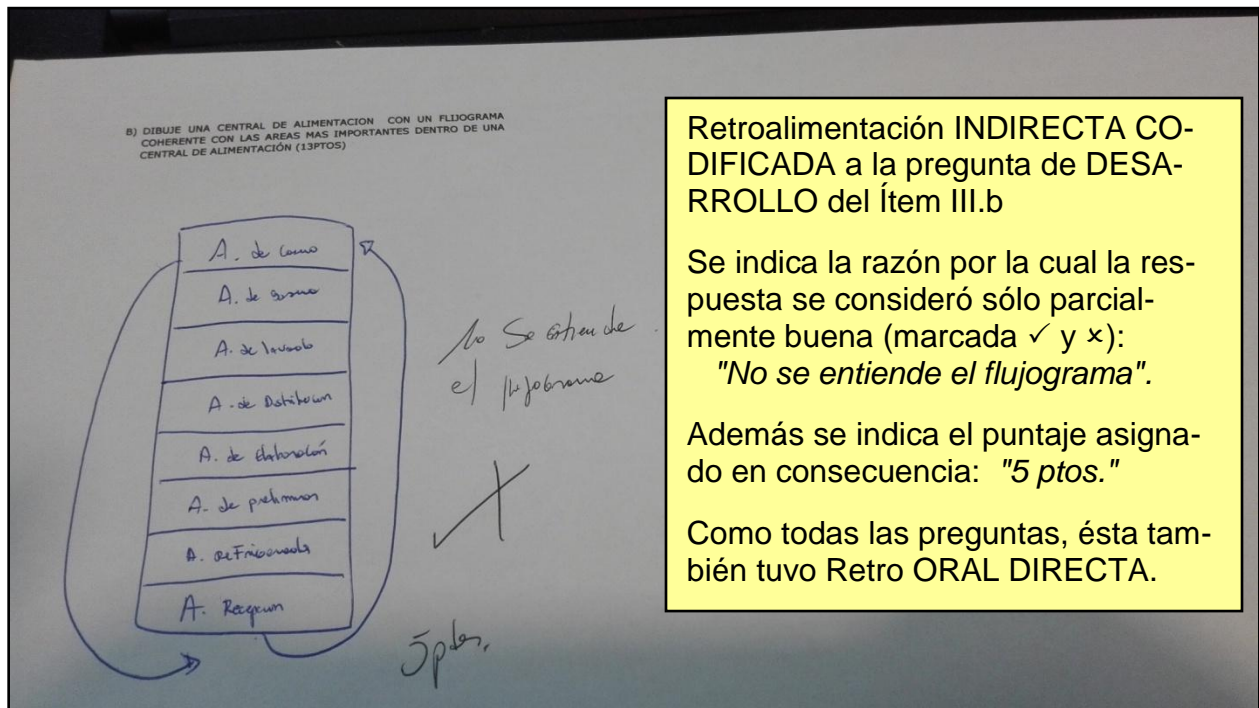 B) DIBUJE UNA CENTRAL DE ALIMENTACION CON UN FLUJOGRAMA
COHERENTE CON LAS AREAS MAS IMPORTANTES DENTRO DE UNA
CENTRAL DE ALIMENTACIÓN (13PTOS)
A. de
A. de
A. de lavado
A. de Distribucion
A. de Elaboración
A. de preliminar
A.
A. Recepcion
No se entiende
el flujograma
5 ptos.
Retroalimentación INDIRECTA CO-
DIFICADA a la pregunta de DESA-
RROLLO del Ítem III.b
Se indica la razón por la cual la res-
puesta se consideró sólo parcial-
mente buena (marcada ✓ y ×):
"No se entiende el flujograma".
Además se indica el puntaje asigna-
do en consecuencia: "5 ptos."
Como todas las preguntas, ésta tam-
bién tuvo Retro ORAL DIRECTA.